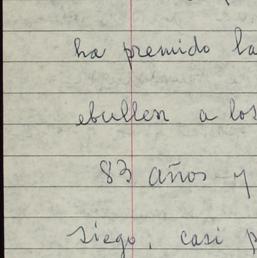 ha premido la
ebullen a los
83 años y
siego, casi p